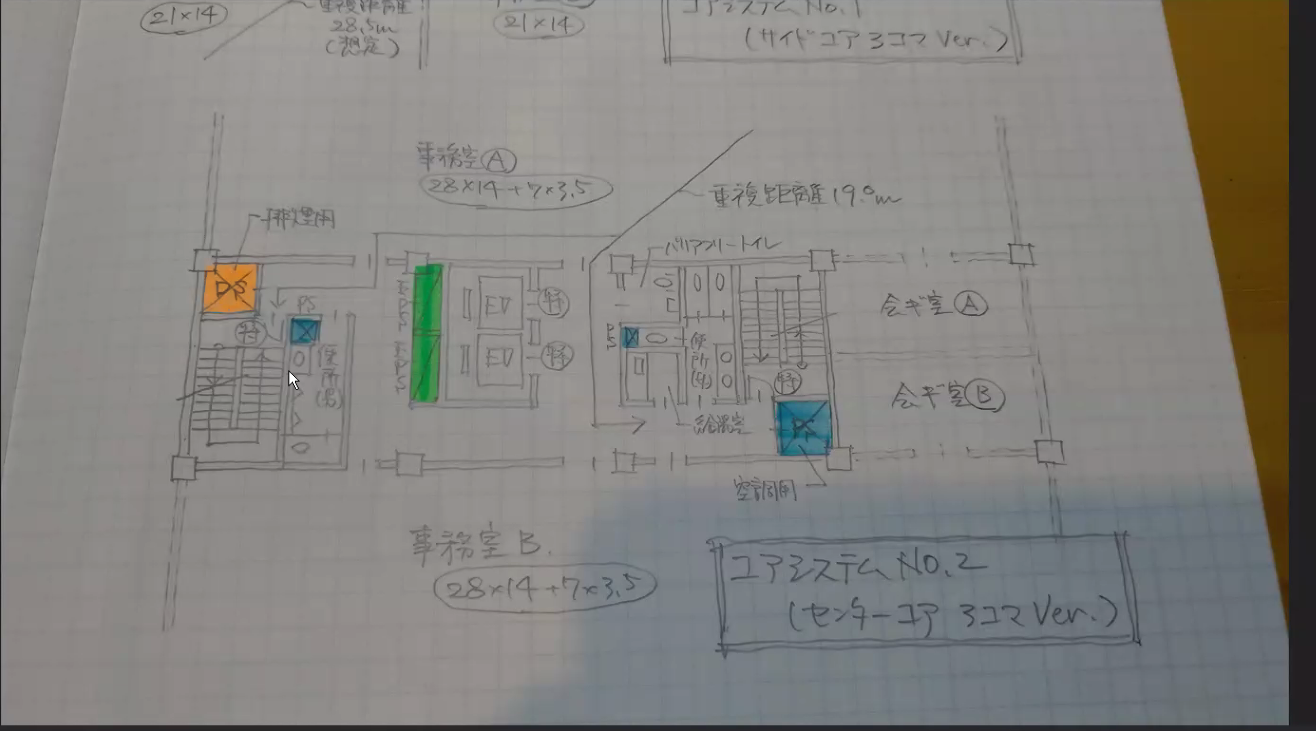 21×14
重複距離
28.5m
(想定)
21×14
コアシステム No.1
(サイドコア 3コマ Ver.)
事務室Ⓐ
28×14+7×3.5
重複距離 19.0m
排煙用
バリアフリートイレ
DS
PS
特
便所(男)
EPS
EPS
EV
特
EV
特
PS
便所(女)
給湯室
特
PS
空調用
会議室Ⓐ
会議室Ⓑ
事務室 B.
28×14+7×3.5
コアシステム NO.2
(センターコア 3コマ Ver.)